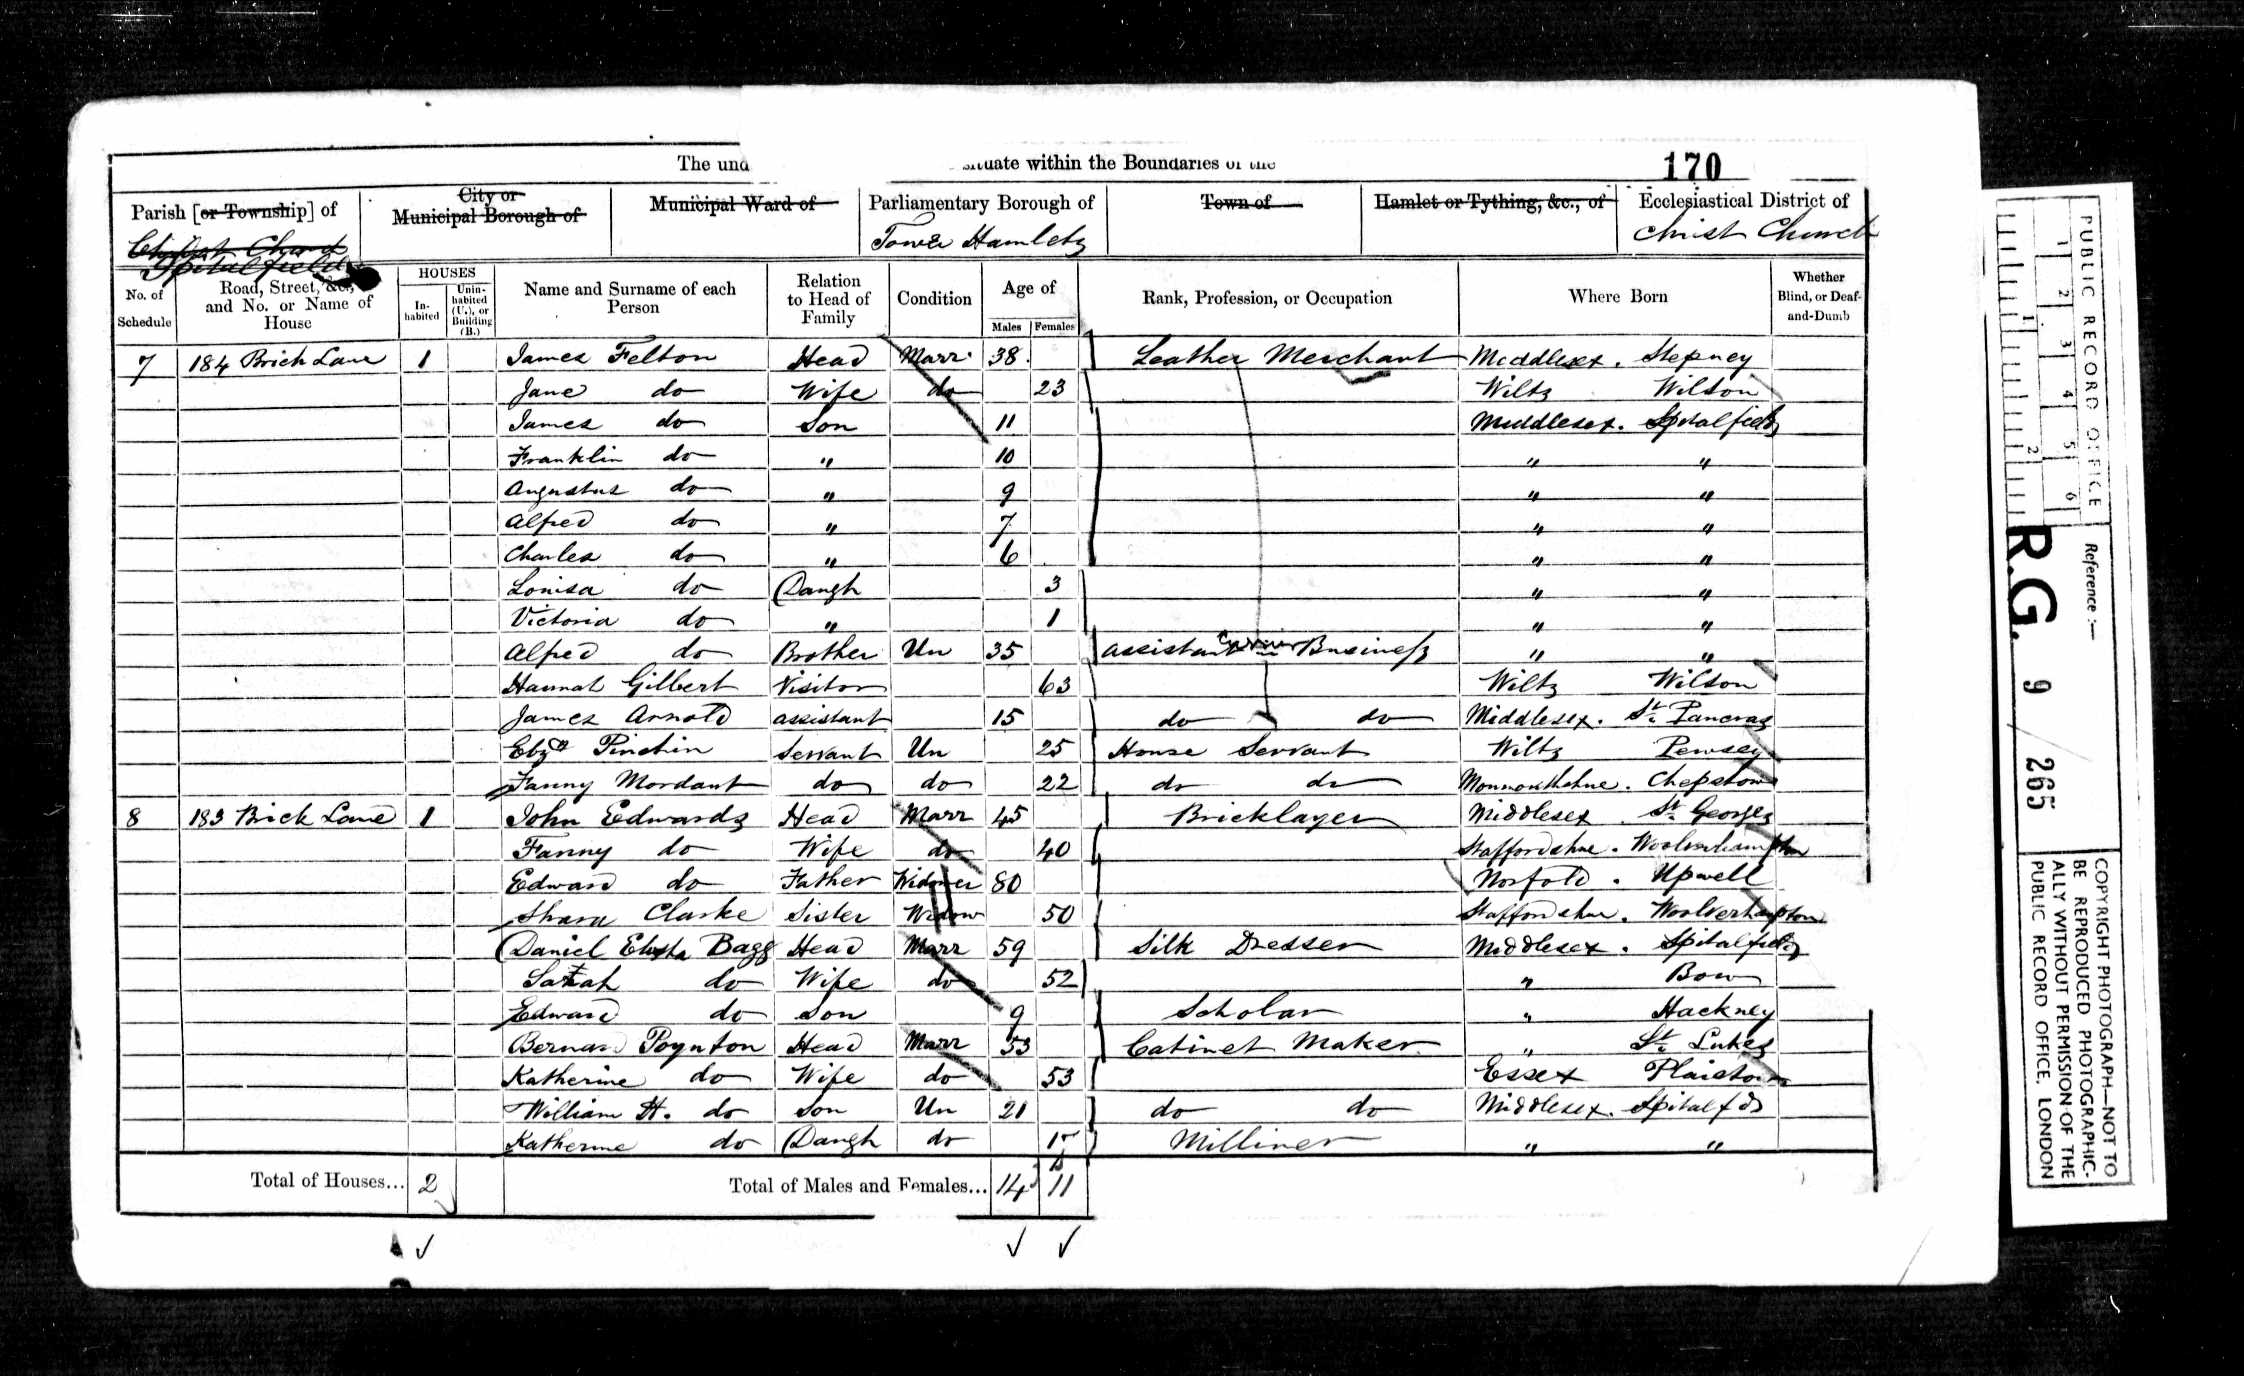 The und situate within the Boundaries of the
170
Parish [or Township] of City or Municipal Borough of Municipal Ward of Parliamentary Borough of Town of Hamlet or Tything, &c., of Ecclesiastical District of
Christ Church Spitalfields Tower Hamletz Christ Church
No. of Schedule Road, Street, &c., and No. or Name of House HOUSES In-habited Unin-habited (U.), or Building (B.) Name and Surname of each Person Relation to Head of Family Condition Age of Males Females Rank, Profession, or Occupation Where Born Whether Blind, or Deaf-and-Dumb
7 184 Brick Lane 1 James Felton Head Marr 38 Leather Merchant Middlesex. Stepney
Jane do Wife do 23 Wiltz Wilson
James do Son 11 Middlesex. Spitalfields
Franklin do " 10 " "
Augustus do " 9 " "
Alfred do " 7 " "
Charles do " 6 " "
Louisa do Daugh 3 " "
Victoria do " 1 " "
Alfred do Brother Un 35 assistant Business " "
Hannah Gilbert Visitor 63 Wiltz Wilson
James Arnold assistant 15 do do Middlesex. St. Pancras
Elizth Pinchin Servant Un 25 House Servant Wiltz Pewsey
Fanny Mordant do do 22 do do Monmouthshire. Chepstow
8 183 Brick Lane 1 John Edwards Head Marr 45 Bricklayer Middlesex St. Georges
Fanny do Wife do 40 Staffordshire. Woolverhampton
Edward do Father Widower 80 Norfolk. Upwell
Clarke Sister Widow 50 Staffordshire. Woolverhampton
Daniel Elisha Bagg Head Marr 59 Silk Dresser Middlesex. Spitalfields
Sarah do Wife do 52 " Bow
Edward do Son 9 Scholar " Hackney
Bernard Poynton Head Marr 53 Cabinet Maker " St. Lukes
Katherine do Wife do 53 Essex Plaistow
William H. do Son Un 21 do do Middlesex. Spitalfds
Katherine do Daugh do Milliner " "
Total of Houses... 2 Total of Males and Females... 14 11
PUBLIC RECORD OFFICE
1 2 3 4 5 6
1 2
Reference :—
R.G. 9 / 265
COPYRIGHT PHOTOGRAPH—NOT TO
BE REPRODUCED PHOTOGRAPHIC-
ALLY WITHOUT PERMISSION OF THE
PUBLIC RECORD OFFICE, LONDON